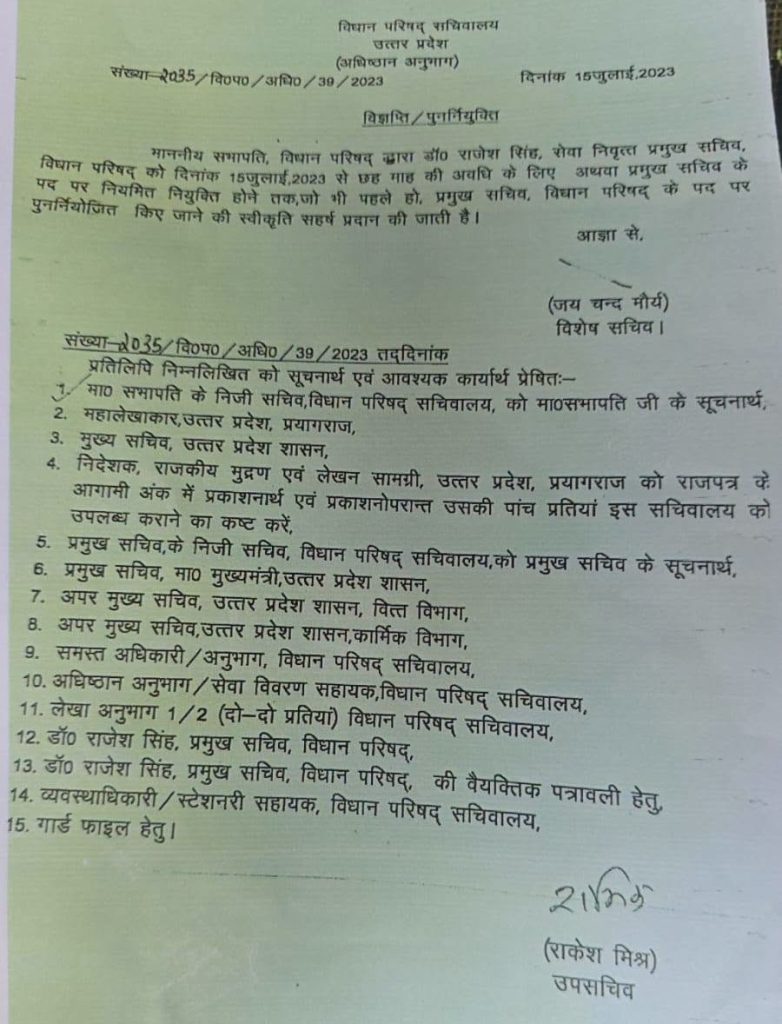 विधान परिषद् सचिवालय
उत्तर प्रदेश
(अधिष्ठान अनुभाग)
संख्या-2035/वि0प0/अधि0/39/2023 दिनांक 15जुलाई,2023
विज्ञप्ति/पुनर्नियुक्ति
माननीय सभापति, विधान परिषद् द्वारा डॉ0 राजेश सिंह, सेवा निवृत्त प्रमुख सचिव,
विधान परिषद् को दिनांक 15जुलाई,2023 से छह माह की अवधि के लिए अथवा प्रमुख सचिव के
पद पर नियमित नियुक्ति होने तक,जो भी पहले हो, प्रमुख सचिव, विधान परिषद् के पद पर
पुनर्नियोजित किए जाने की स्वीकृति सहर्ष प्रदान की जाती है।
आज्ञा से,
(जय चन्द मौर्य)
विशेष सचिव।
संख्या-2035/वि0प0/अधि0/39/2023 तद्दिनांक
प्रतिलिपि निम्नलिखित को सूचनार्थ एवं आवश्यक कार्यार्थ प्रेषितः—
1. मा0 सभापति के निजी सचिव,विधान परिषद् सचिवालय, को मा0सभापति जी के सूचनार्थ,
2. महालेखाकार,उत्तर प्रदेश, प्रयागराज,
3. मुख्य सचिव, उत्तर प्रदेश शासन,
4. निदेशक, राजकीय मुद्रण एवं लेखन सामग्री, उत्तर प्रदेश, प्रयागराज को राजपत्र के
आगामी अंक में प्रकाशनार्थ एवं प्रकाशनोपरान्त उसकी पांच प्रतियां इस सचिवालय को
उपलब्ध कराने का कष्ट करें,
5. प्रमुख सचिव,के निजी सचिव, विधान परिषद् सचिवालय,को प्रमुख सचिव के सूचनार्थ,
6. प्रमुख सचिव, मा0 मुख्यमंत्री,उत्तर प्रदेश शासन,
7. अपर मुख्य सचिव, उत्तर प्रदेश शासन, वित्त विभाग,
8. अपर मुख्य सचिव,उत्तर प्रदेश शासन,कार्मिक विभाग,
9. समस्त अधिकारी/अनुभाग, विधान परिषद् सचिवालय,
10. अधिष्ठान अनुभाग/सेवा विवरण सहायक,विधान परिषद् सचिवालय,
11. लेखा अनुभाग 1/2 (दो-दो प्रतियां) विधान परिषद् सचिवालय,
12. डॉ0 राजेश सिंह, प्रमुख सचिव, विधान परिषद्,
13. डॉ0 राजेश सिंह, प्रमुख सचिव, विधान परिषद्, की वैयक्तिक पत्रावली हेतु,
14. व्यवस्थाधिकारी/स्टेशनरी सहायक, विधान परिषद् सचिवालय,
15. गार्ड फाइल हेतु।
(राकेश मिश्र)
उपसचिव